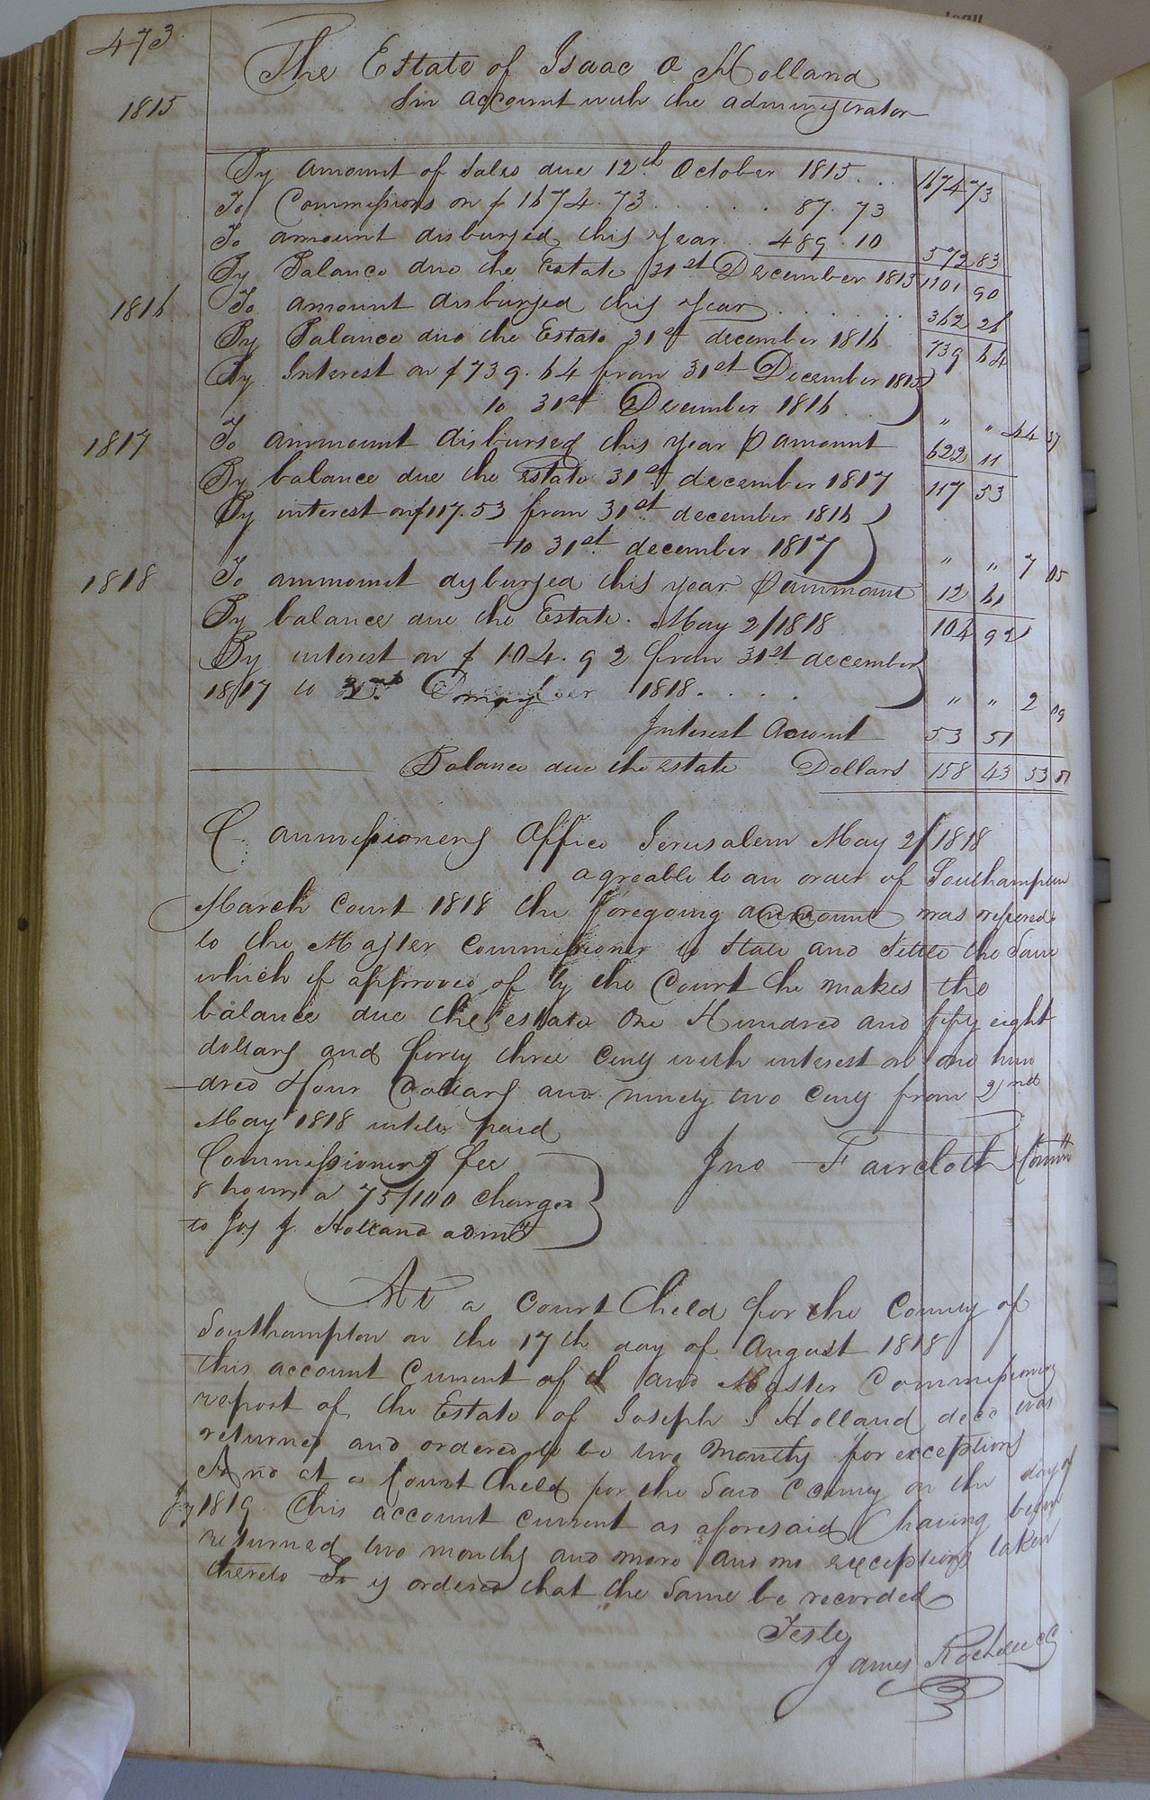 473
The Estate of Isaac O Holland
1815 In account with the administrator
By amount of Sales due 12th October 1815 . . . 1674 73
To Commissions on $ 1674.73 . . . . . . 87.73
To amount disbursed this year . . 489.10 572 83
By Balance due the Estate 31st December 1815 1101 90
1816 To amount disbursed this year . . . . . . . 362 26
By Balance due the Estate 31st december 1816 739 64
By Interest on $ 739.64 from 31st December 1815
to 31st December 1816 . " " 44 37
1817 To ammount disbursed this year p amount 622 11
By balance due the Estate 31st december 1817 117 53
By interest on $117.53 from 31st december 1816
to 31st december 1817 " " 7 05
1818 To ammount disbursed this year p ammount 12 61
By balance due the Estate. May 2/1818 104 92
By interest on $ 104.92 from 31st december
1817 to may 1818 . . . . " " 2 09
Interest Account 53 51
Balance due the estate Dollars 158 43 53 51
Commissioners Office Jerusalem May 2/1818
agreable to an order of Southampton
March Court 1818 the foregoing account was refered
to the Master Commissioner to State and Settle the Same
which if approved of by the Court he makes the
balance due the estate One Hundred and fifty eight
dollars and forty three cents with interest on one hun
dred & four Dollars and ninety two cents from 2nd
May 1818 untill paid
Commissioners fee
8 hours a 75/100 charged
to Jos J. Holland admr
Jno Faircloth Comm
At a Court held for the County of
Southampton on the 17th day of August 1818
this account Current of & and Master Commissioners
report of the Estate of Joseph J Holland decd was
returned and ordered to be two months for exceptions
And at a Court held for the Said County on the day of
1819 This account current as aforesaid having been
returned two months and more and no exceptions taken
thereto is ordered that the Same be recorded
Teste
James Rochelle CC